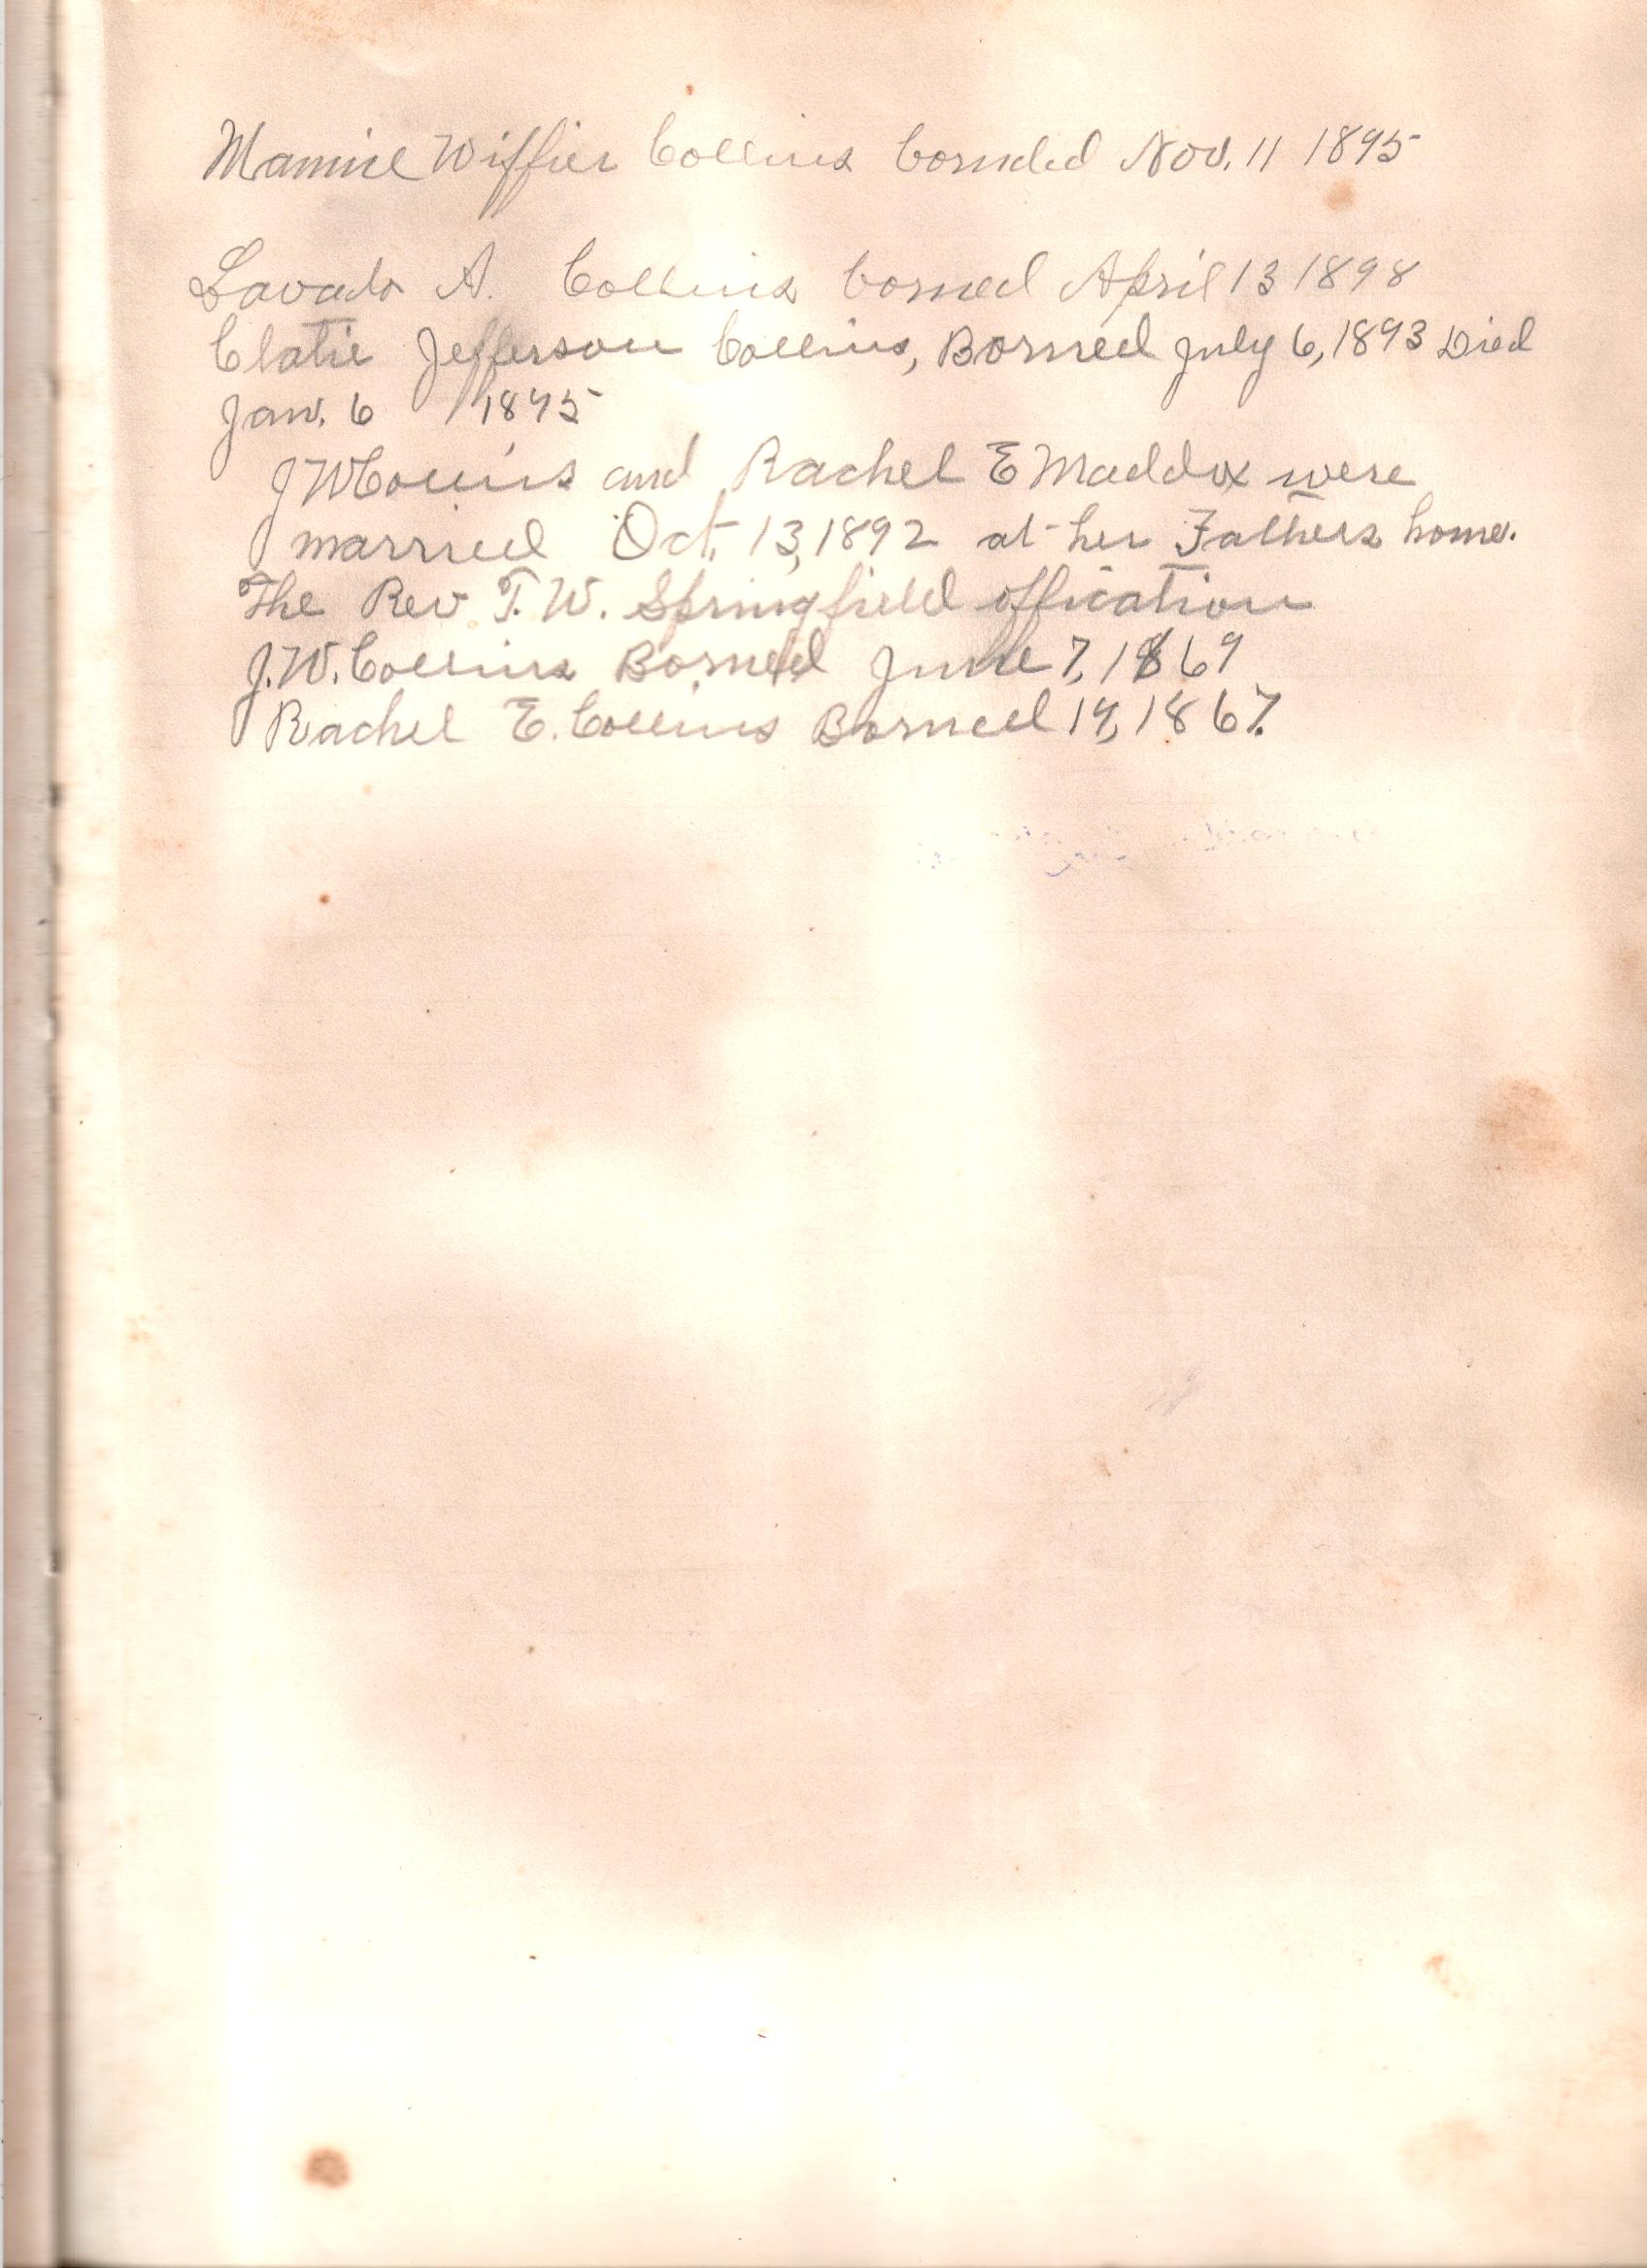 Mamie Wiffier Collins borned Nov. 11 1895
Lavada A. Collins borned April 13 1898
Clatie Jefferson Collins, Borned July 6, 1893 Died
Jan. 6 1895
J W Collins and Rachel E Maddox were
married Oct. 13, 1892 at her Fathers home.
The Rev T. W. Springfield offication
J. W. Collins Borned June 7, 1869
Rachel E. Collins Borned 14, 1867.